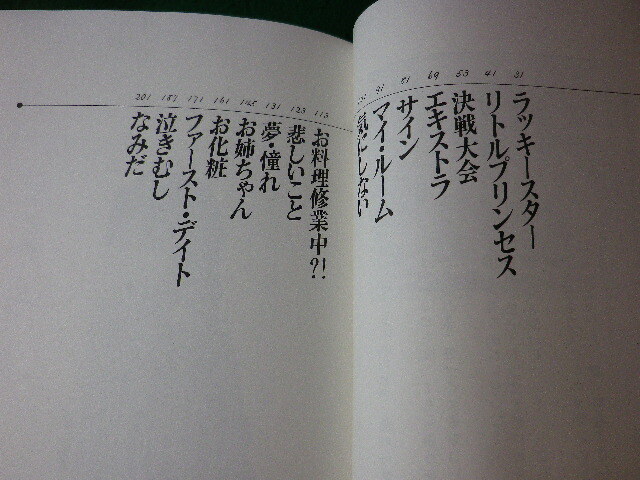 ラッキースター
31
リトルプリンセス
41
決戦大会
53
エキストラ
69
サイン
81
マイ・ルーム
91
気にしない
お料理修業中?!
113
悲しいこと
123
夢・憧れ
131
お姉ちゃん
145
お化粧
161
ファースト・デイト
171
泣きむし
187
なみだ
201